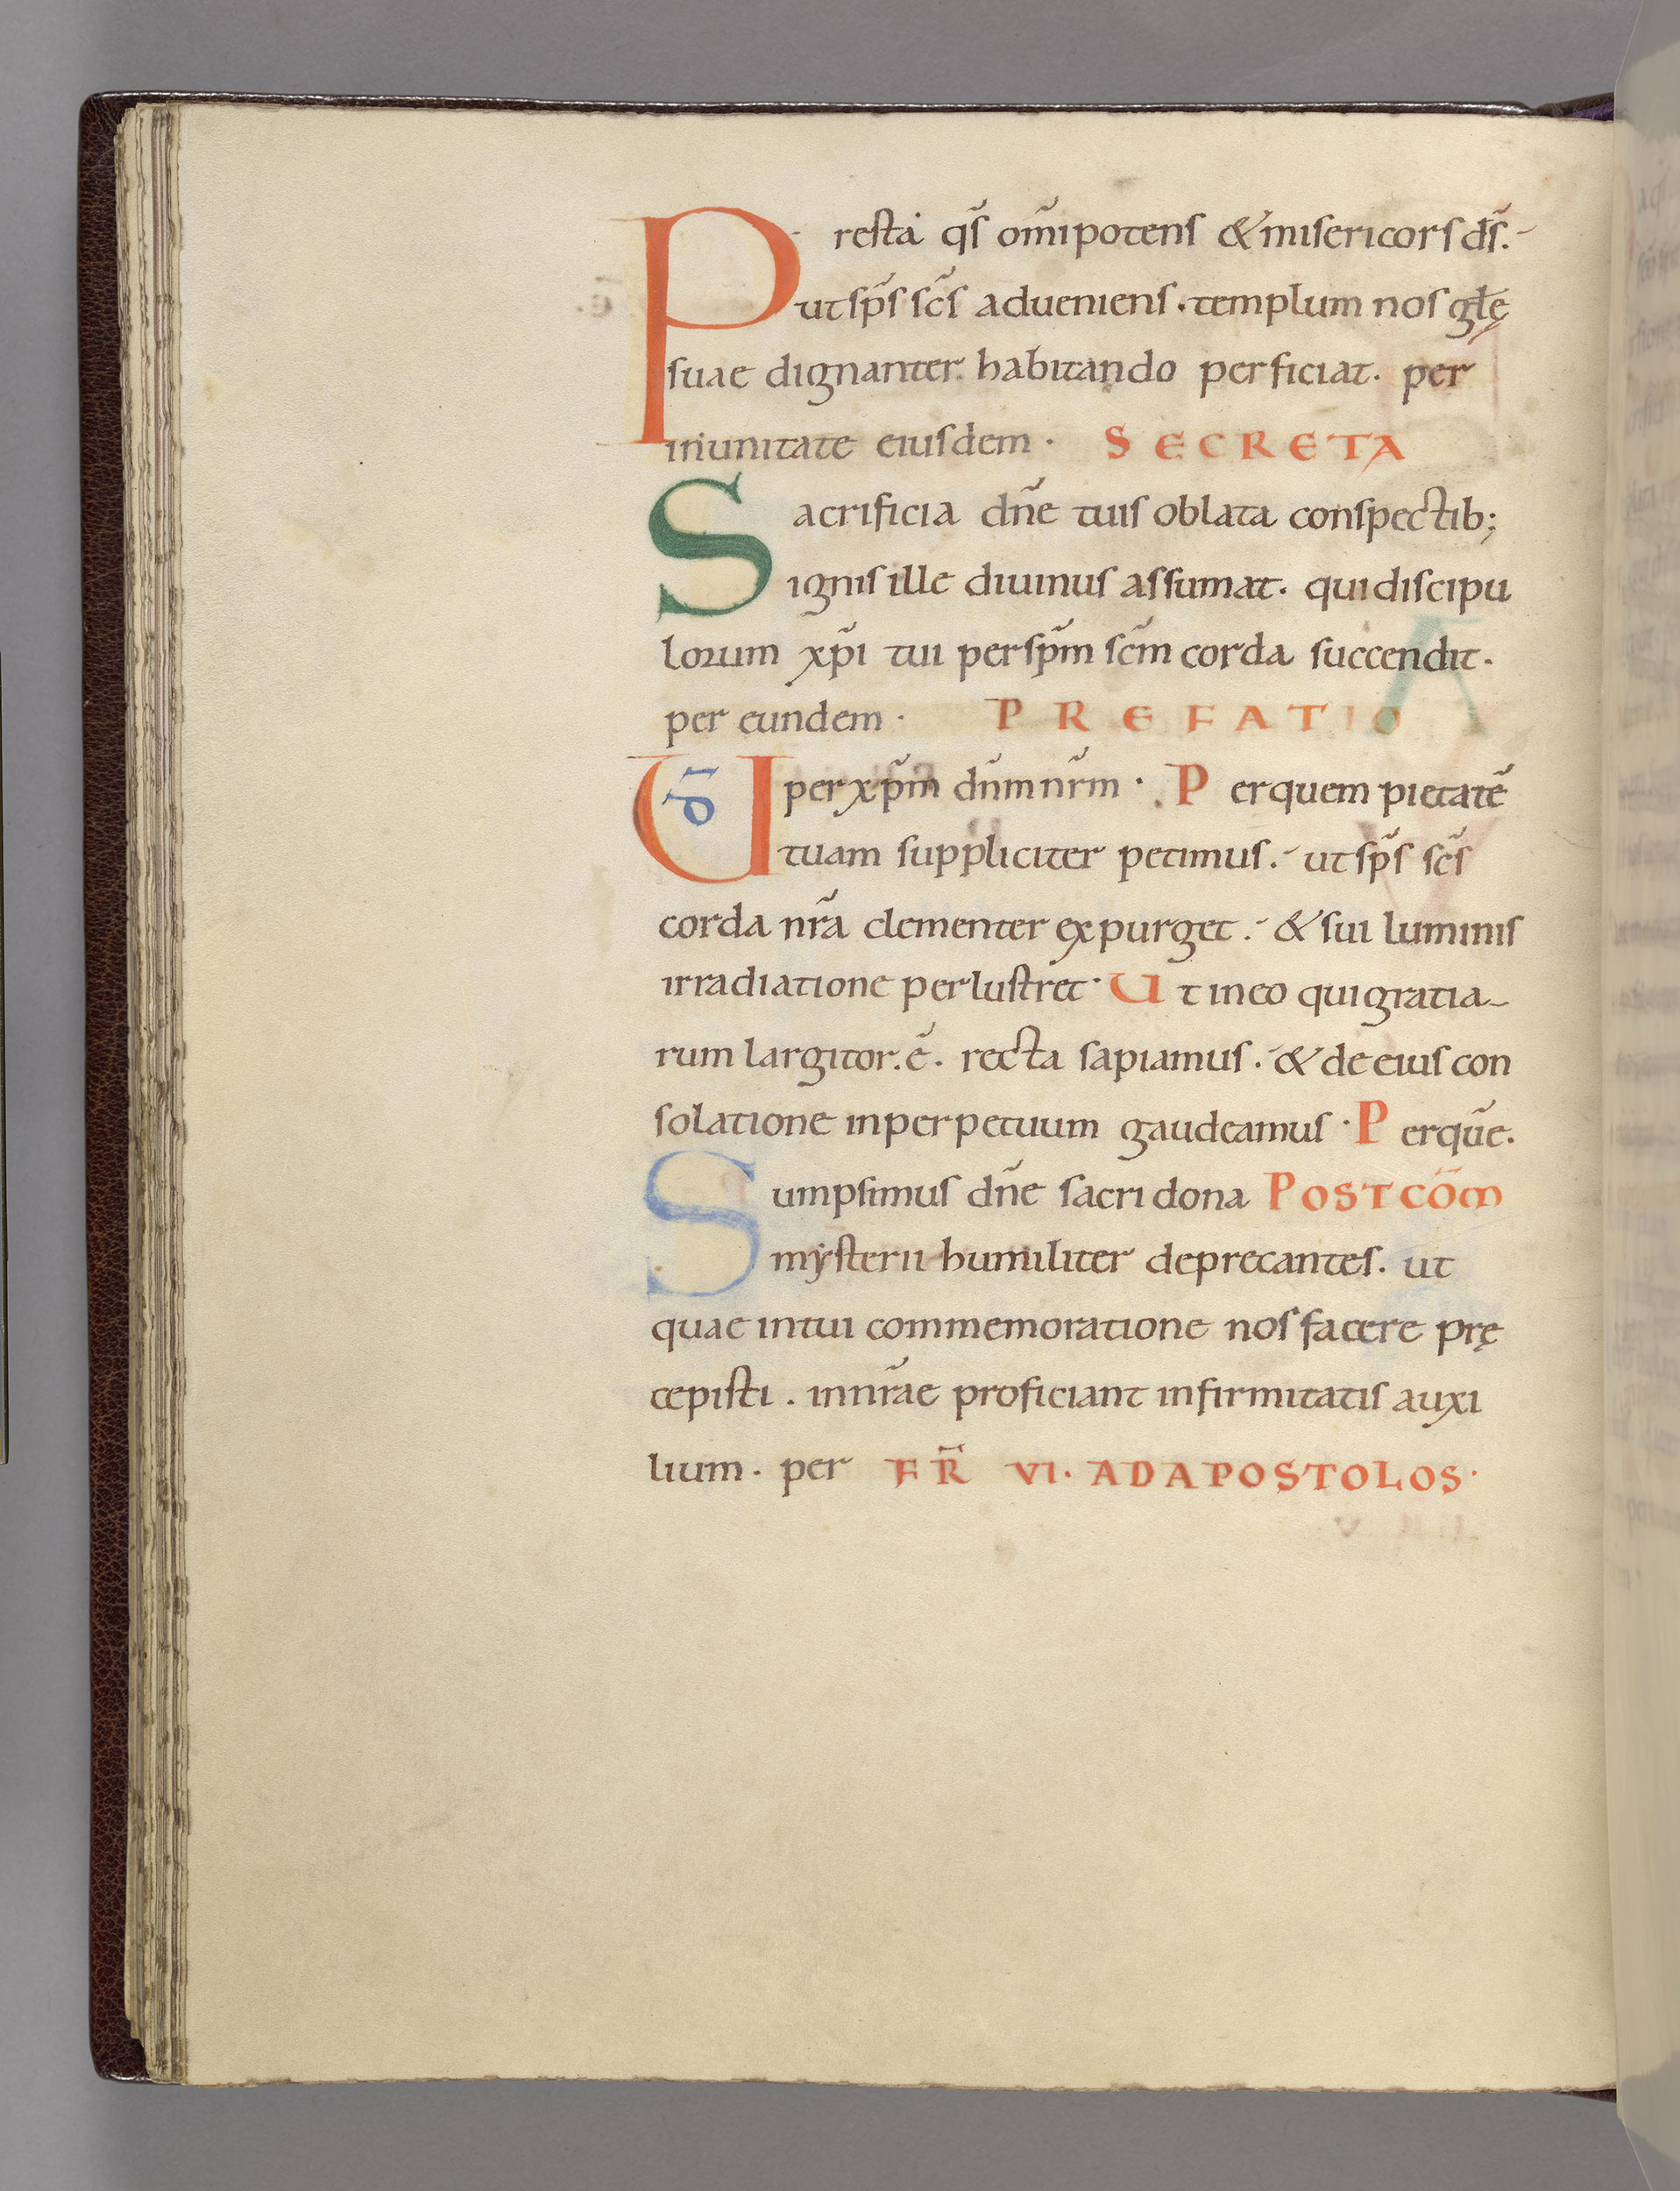 Presta q̄s om̄ipotens & misericors d̄s.
ut sp̄s sc̄s adueniens . templum nos gl̄ę
suae dignanter habitando perficiat. per
in unitate eiusdem . SECRETA
Sacrificia dn̄e tuis oblata conspectib;
ignis ille diuinus assumat. qui discipu
lorum xp̄i tui per sp̄m sc̄m corda succendit.
per eundem . PREFATIO
U D̄ per xp̄m dn̄m nr̄m . Per quem pietatē
tuam suppliciter petimus. ut sp̄s sc̄s
corda nr̄a clementer expurget . & sui luminis
irradiatione perlustret. Ut in eo qui gratia
rum largitor. ē. recta sapiamus . & de eius con
solatione in perpetuum gaudeamus . Per quē.
Sumpsimus dn̄e sacri dona POST COM̄
mẏsterii humiliter deprecantes. ut
quae in tui commemoratione nos facere prę
cepisti . in nr̄ae proficiant infirmitatis auxi
lium . per FR̄ VI. AD APOSTOLOS.